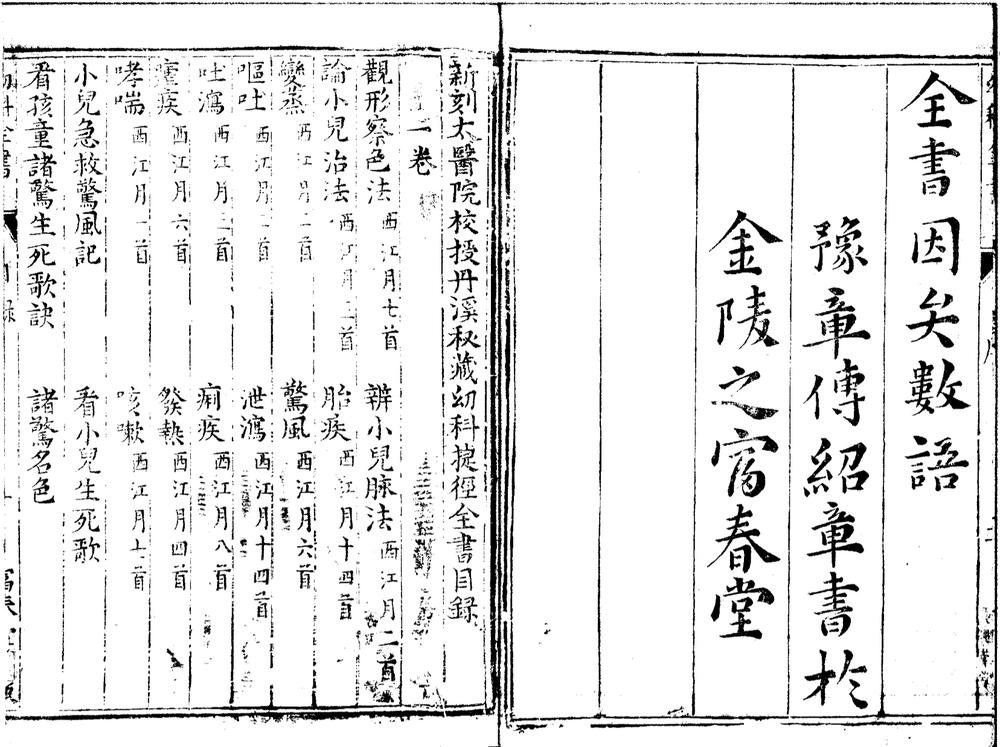 全書因矣數語
豫章傅紹章書於
金陵之富春堂
新刻太醫院校授丹溪秘藏幼科捷徑全書目録
一卷
觀形察色法 西江月七首 辨小兒脉法 西江月二首
論小兒治法 西江月三首 胎疾 西江月十四首
變蒸 西江月二首 驚風 西江月六首
嘔吐 西江月二首 泄瀉 西江月十四首
吐瀉 西江月三首 痢疾 西江月八首
瘧疾 西江月六首 發熱 西江月四首
哮喘 西江月一首 咳嗽 西江月七首
小兒急救驚風記 看小兒生死歌
看孩童諸驚生死歌訣 諸驚名色
幼科全書 目録